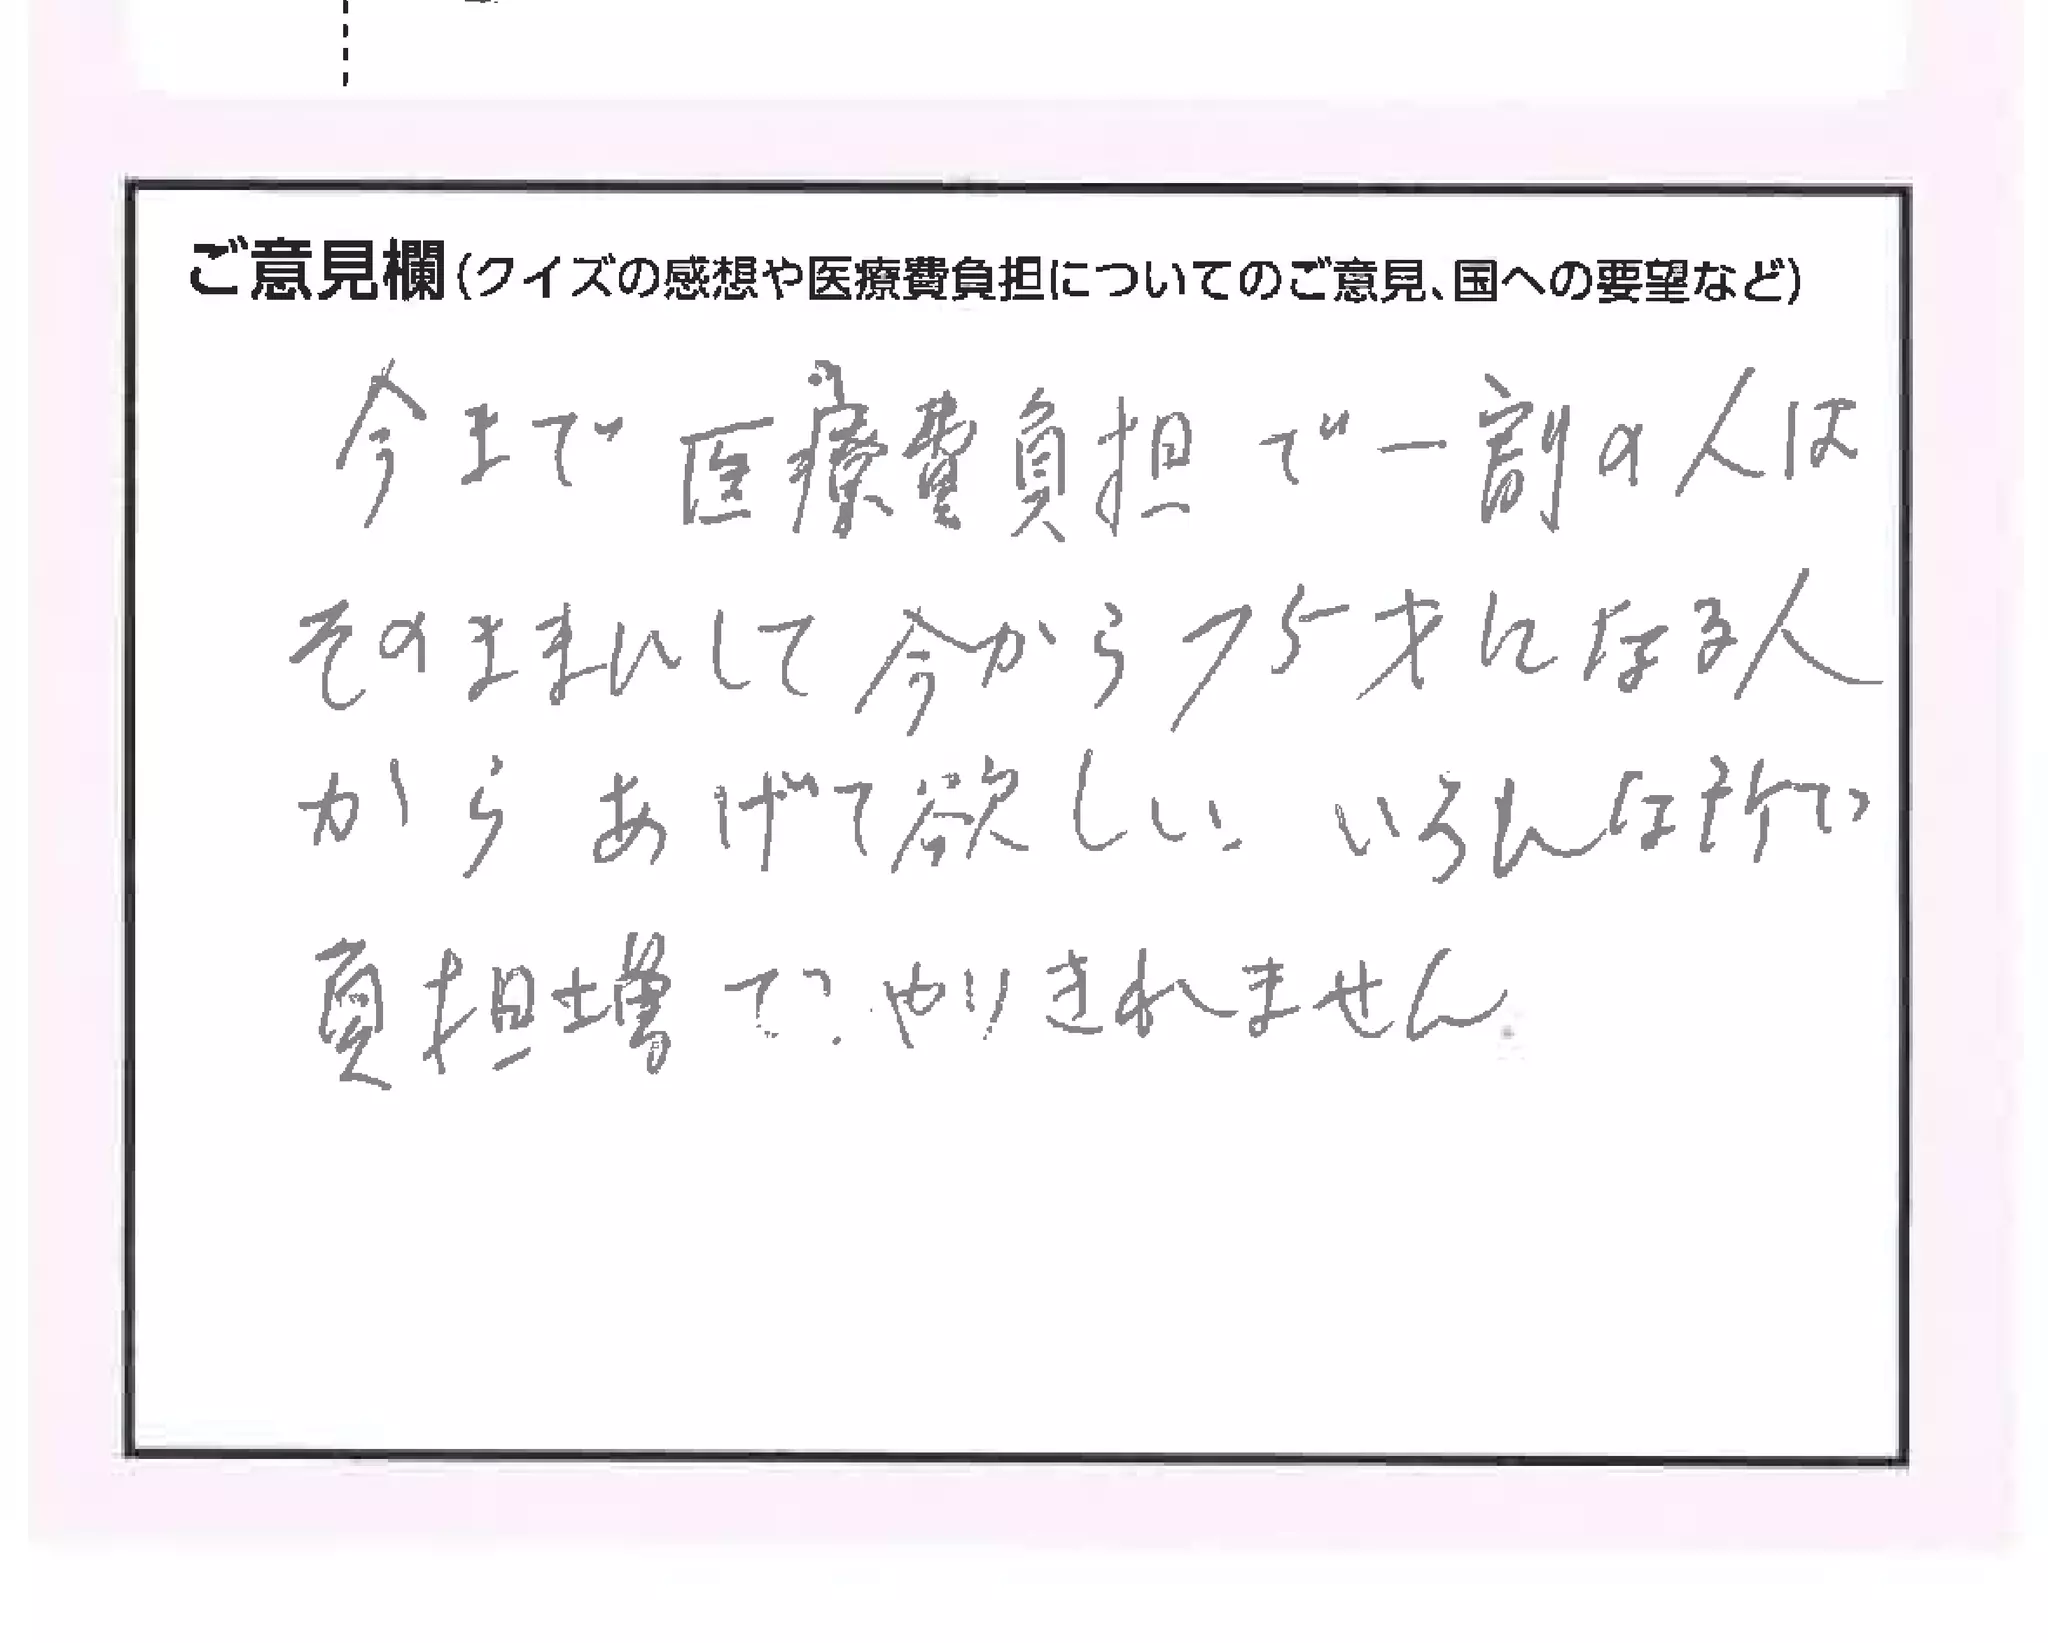 ご意見欄(クイズの感想や医療費負担についてのご意見、国への要望など)
今まで医療費負担で一割の人は
そのままにして今から75才になる人
からあげて欲しい。いろんな所で
負担増で、やりきれません。